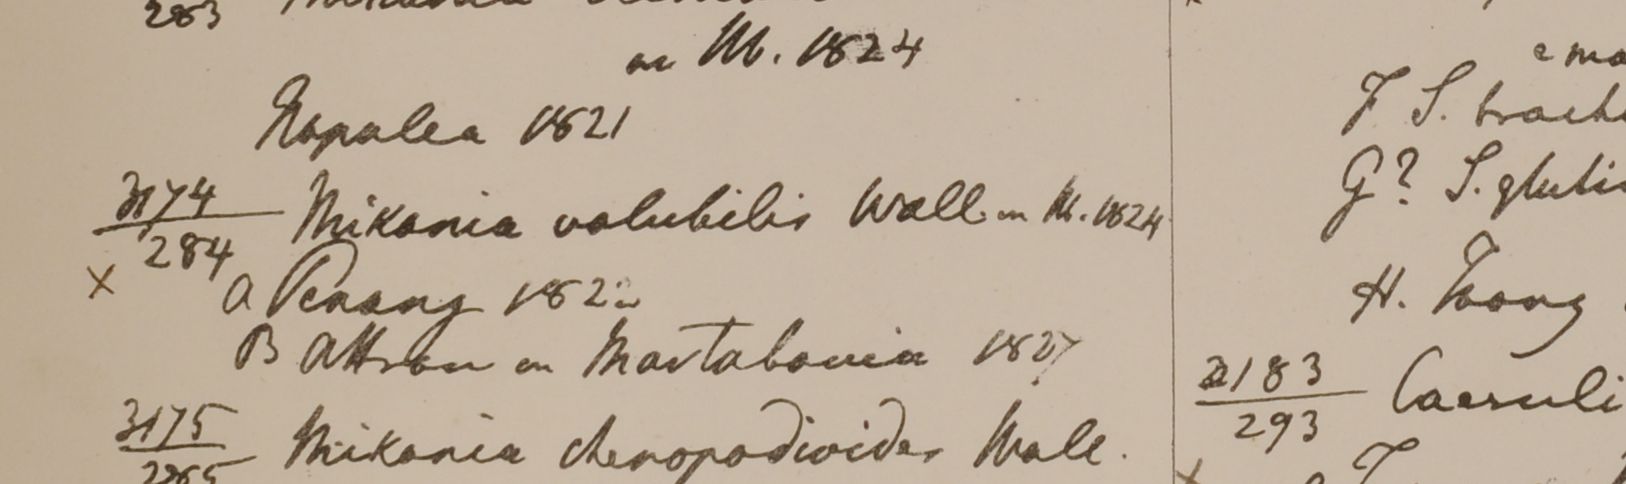 283 Mikania
in M. 1824
Napalea 1821
3174
284 Mikania volubilis Wall in M. 1824
x
a Penang 1822
B Attran in Martabania 1827
3175
Mikania chenopodioides Wall.
F S. brach
G? S. glutin
H. Toong
3183
293 Caesuli